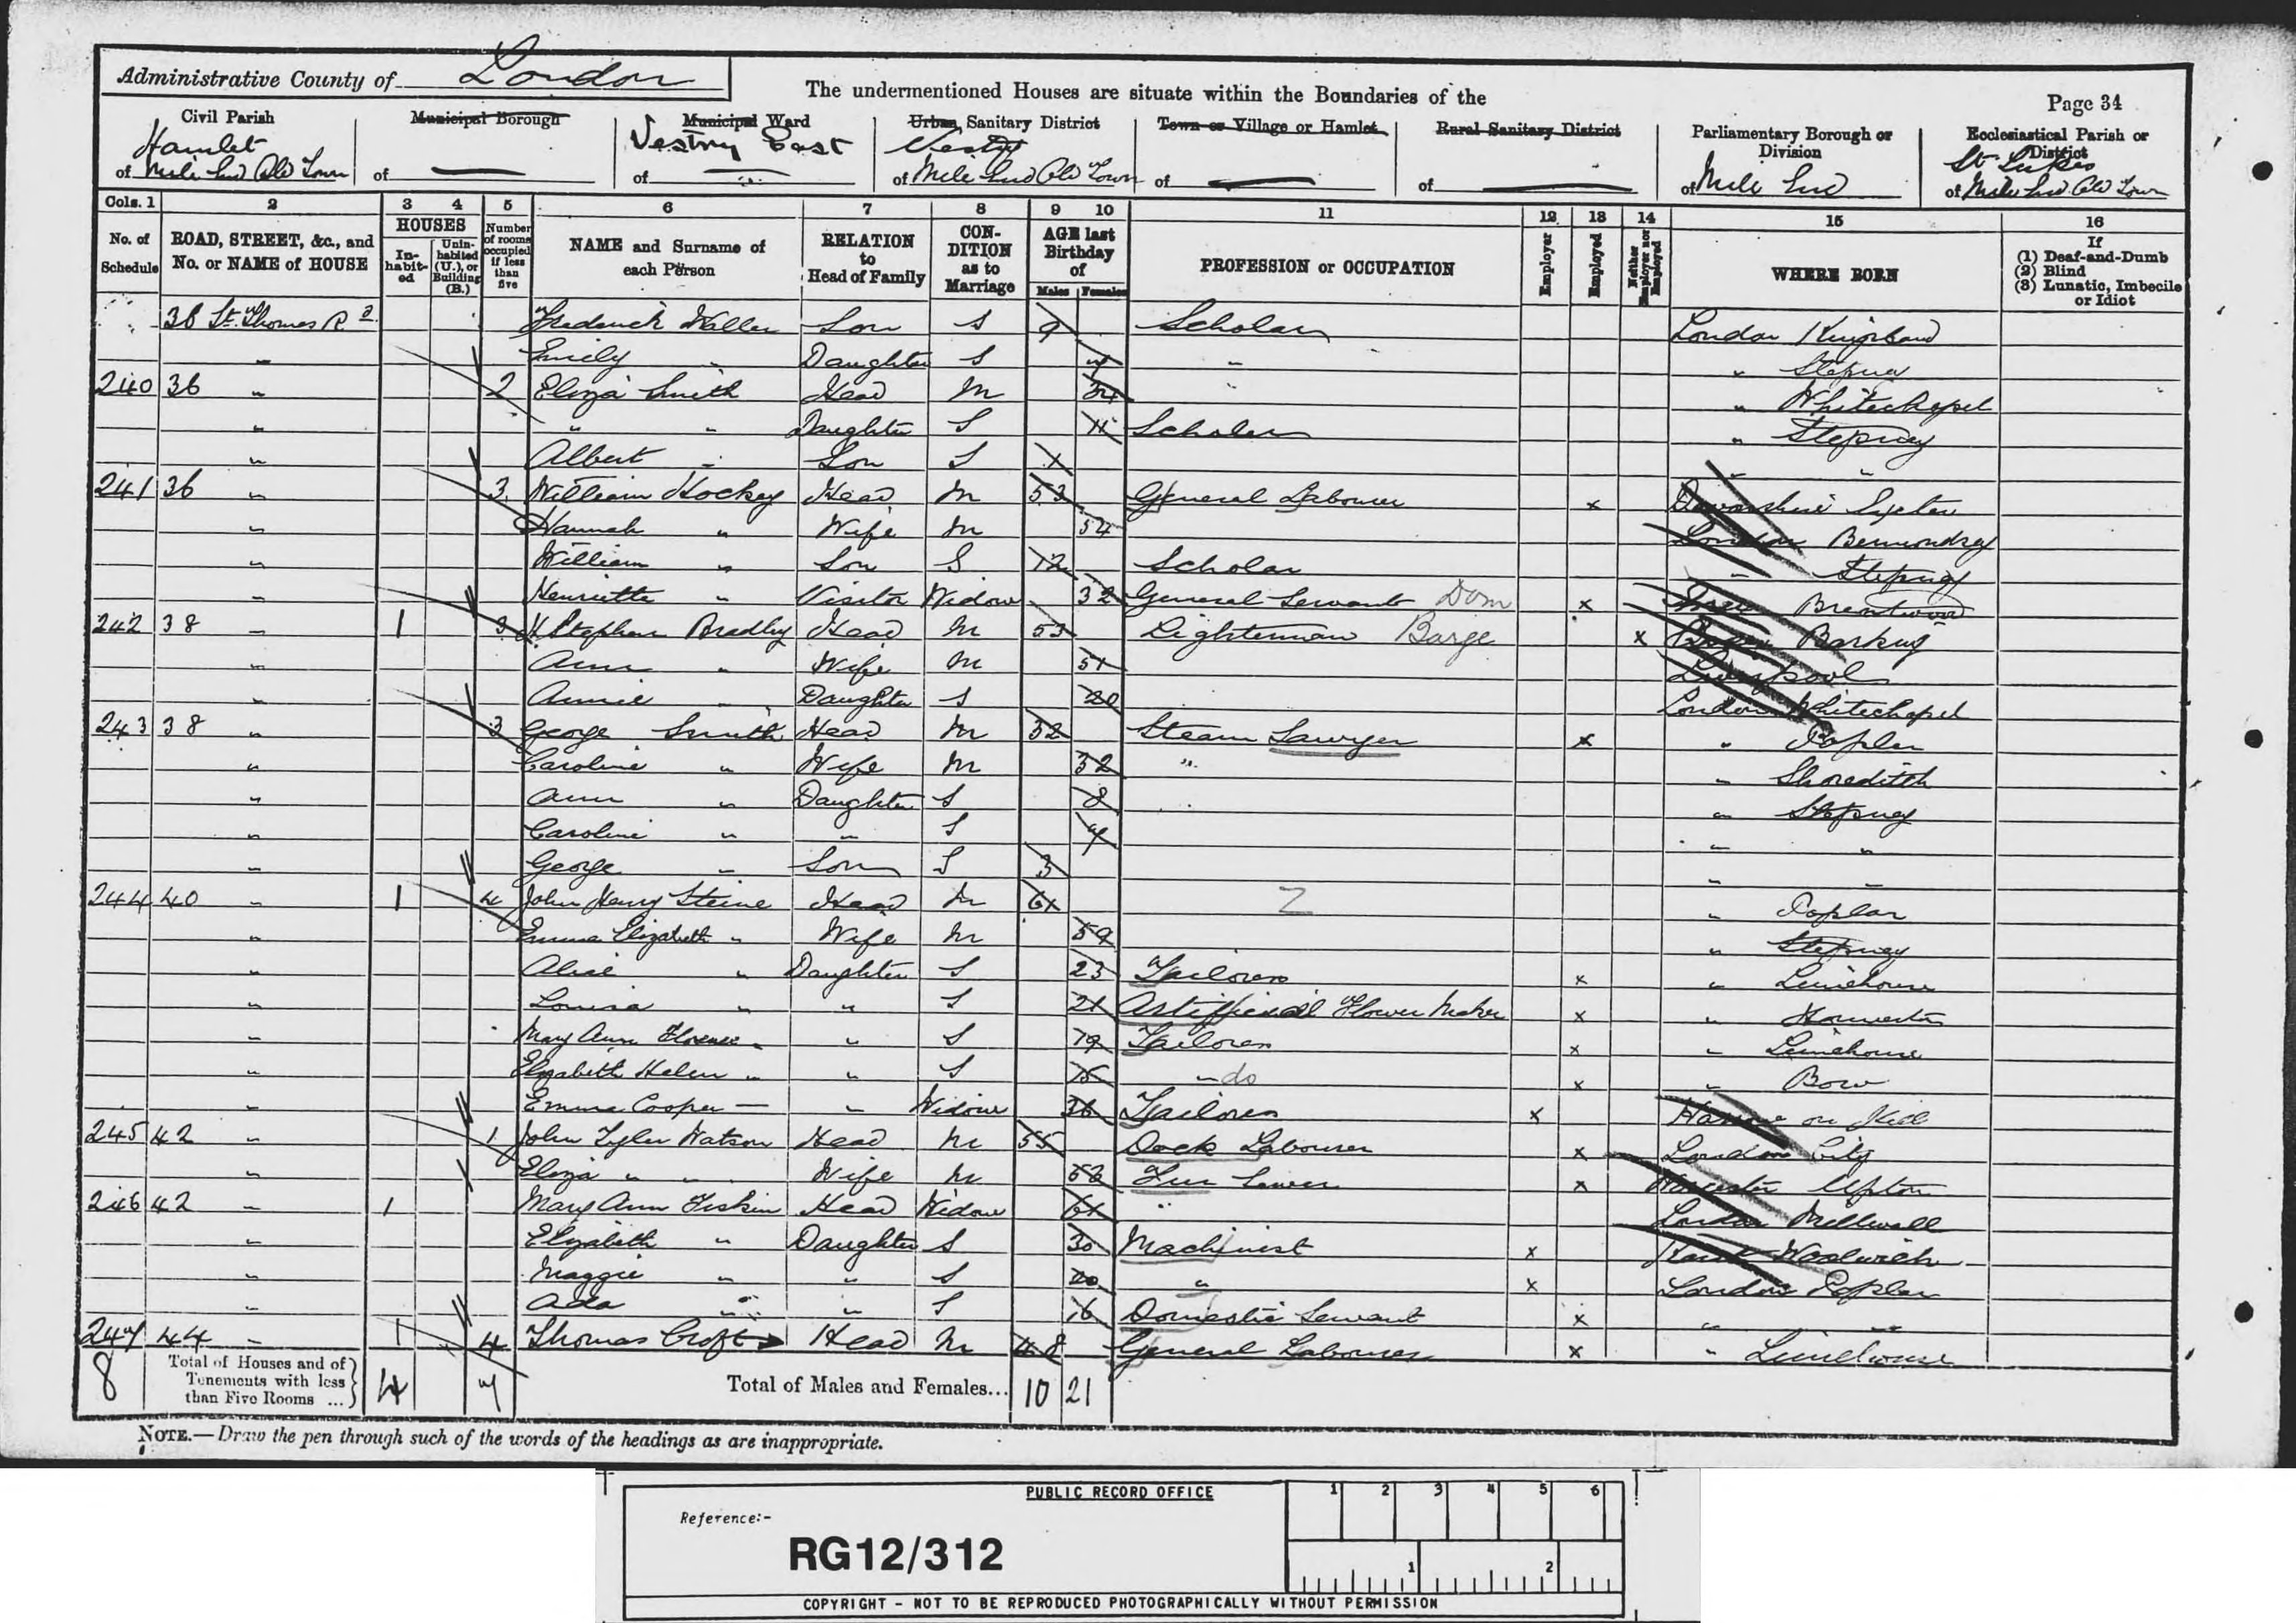 Administrative County of London
The undermentioned Houses are situate within the Boundaries of the
Page 34
Civil Parish
Hamlet
of Mile End Old Town
Municipal Borough
of
Municipal Ward
Vestry East
of
Urban Sanitary District
Vestry
of Mile End Old Town
Town or Village or Hamlet
of
Rural Sanitary District
of
Parliamentary Borough or Division
of Mile End
Ecclesiastical Parish or District
St Lukes
of Mile End Old Town
Cols. 1 2 3 4 5 6 7 8 9 10 11 12 13 14 15 16
No. of Schedule
ROAD, STREET, &c., and No. or NAME of HOUSE
HOUSES
In-habit-ed
Unin-habited (U.), or Building (B.)
Number of rooms occupied if less than five
NAME and Surname of each Person
RELATION to Head of Family
CON-DITION as to Marriage
AGE last Birthday of
Males Females
PROFESSION or OCCUPATION
Employer
Employed
Neither Employer nor Employed
WHERE BORN
If
(1) Deaf-and-Dumb
(2) Blind
(3) Lunatic, Imbecile or Idiot
36 St. Thomas Rd Frederick Waller Son S 9 Scholar London
" Emily " Daughter S 7 " " Stepney
240 36 " 2 Eliza Smith Head M 34 " " Whitechapel
" " " Daughter S 11 Scholar " Stepney
" Albert " Son S " "
241 36 " 3 William Hockey Head M 53 General Labourer x Devonshire Exeter
" Hannah " Wife M 54 London Bermondsey
" William " Son S 12 Scholar " Stepney
" Henrietta " Visitor Widow 32 General Servant Dom x Essex Brentwood
242 38 " 1 3 Stephen Bradley Head M 53 Lighterman Barge x Essex Barking
" Ann " Wife M 51 Liverpool
" Annie " Daughter S 20 London Whitechapel
243 38 " 3 George Smith Head M 32 Steam Sawyer x " Poplar
" Caroline " Wife M 32 " " Shoreditch
" Ann " Daughter S 8 " Stepney
" Caroline " " S 4 " "
" George " Son S 3 " "
244 40 " 1 4 John Henry Steine Head M 61 " Poplar
" Emma Elizabeth " Wife M 59 " Stepney
" Alice " Daughter S 23 Tailoress x " Limehouse
" Louisa " " S 21 Artifficial Flower Maker x "
" Mary Ann Florence " " S 19 Tailoress x " Limehouse
" Elizabeth Helen " " S " do x " Bow
" Emma Cooper — " Widow Tailoress x
245 42 " 1 John Tyler Watson Head M 55 Dock Labourer x London City
" Eliza " " Wife M Fur Sewer x Upton
246 42 " 1 Mary Ann Fiskin Head Widow 61 " London Millwall
" Elizabeth " Daughter S 30 Machinist x Kent Woolwich
" Maggie " " S 20 " x London Poplar
" Ada " " S 16 Domestic Servant x " "
247 44 " 1 4 Thomas Croft Head M 48 General Labourer x " Limehouse
8 Total of Houses and of Tenements with less than Five Rooms ... 4 7 Total of Males and Females... 10 21
NOTE.—Draw the pen through such of the words of the headings as are inappropriate.
PUBLIC RECORD OFFICE
1 2 3 4 5 6
Reference:-
RG12/312
1 2
COPYRIGHT - NOT TO BE REPRODUCED PHOTOGRAPHICALLY WITHOUT PERMISSION